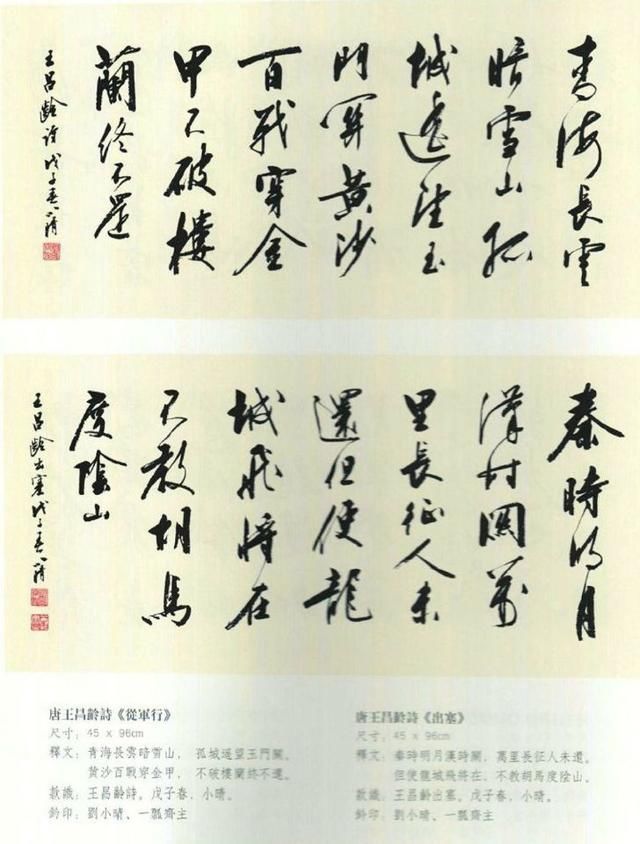 青海長雲
暗雪山孤
城遥望玉
門關黄沙
百戰穿金
甲不破樓
蘭終不還
王昌齡詩戊子春小晴
秦時明月
漢时關萬
里長征人未
還但使龍
城飛將在
不教胡馬
度陰山
王昌齡出塞戊子春小晴
唐王昌齡詩《從軍行》
尺寸：45 x 96cm
釋文：青海長雲暗雪山， 孤城遥望玉門關。
黄沙百戰穿金甲， 不破樓蘭終不還。
款識：王昌齡詩。戊子春，小晴。
鈐印：劉小晴、一瓢齋主
唐王昌齡詩《出塞》
尺寸：45 x 96cm
釋文：秦時明月漢時關，萬里長征人未還。
但使龍城飛將在，不教胡馬度陰山。
款識：王昌齡出塞。戊子春，小晴。
鈐印：劉小晴、一瓢齋主